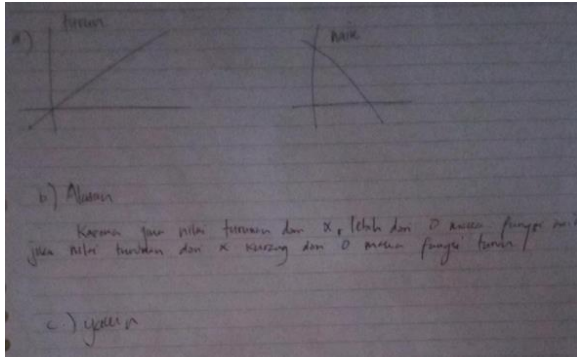 a) turun naik
b) Alasan
Karena jika nilai turunan dari x, lebih dari 0 maka fungsi
jika nilai turunan dari x kurang dari 0 maka fungsi turun
c) yakin